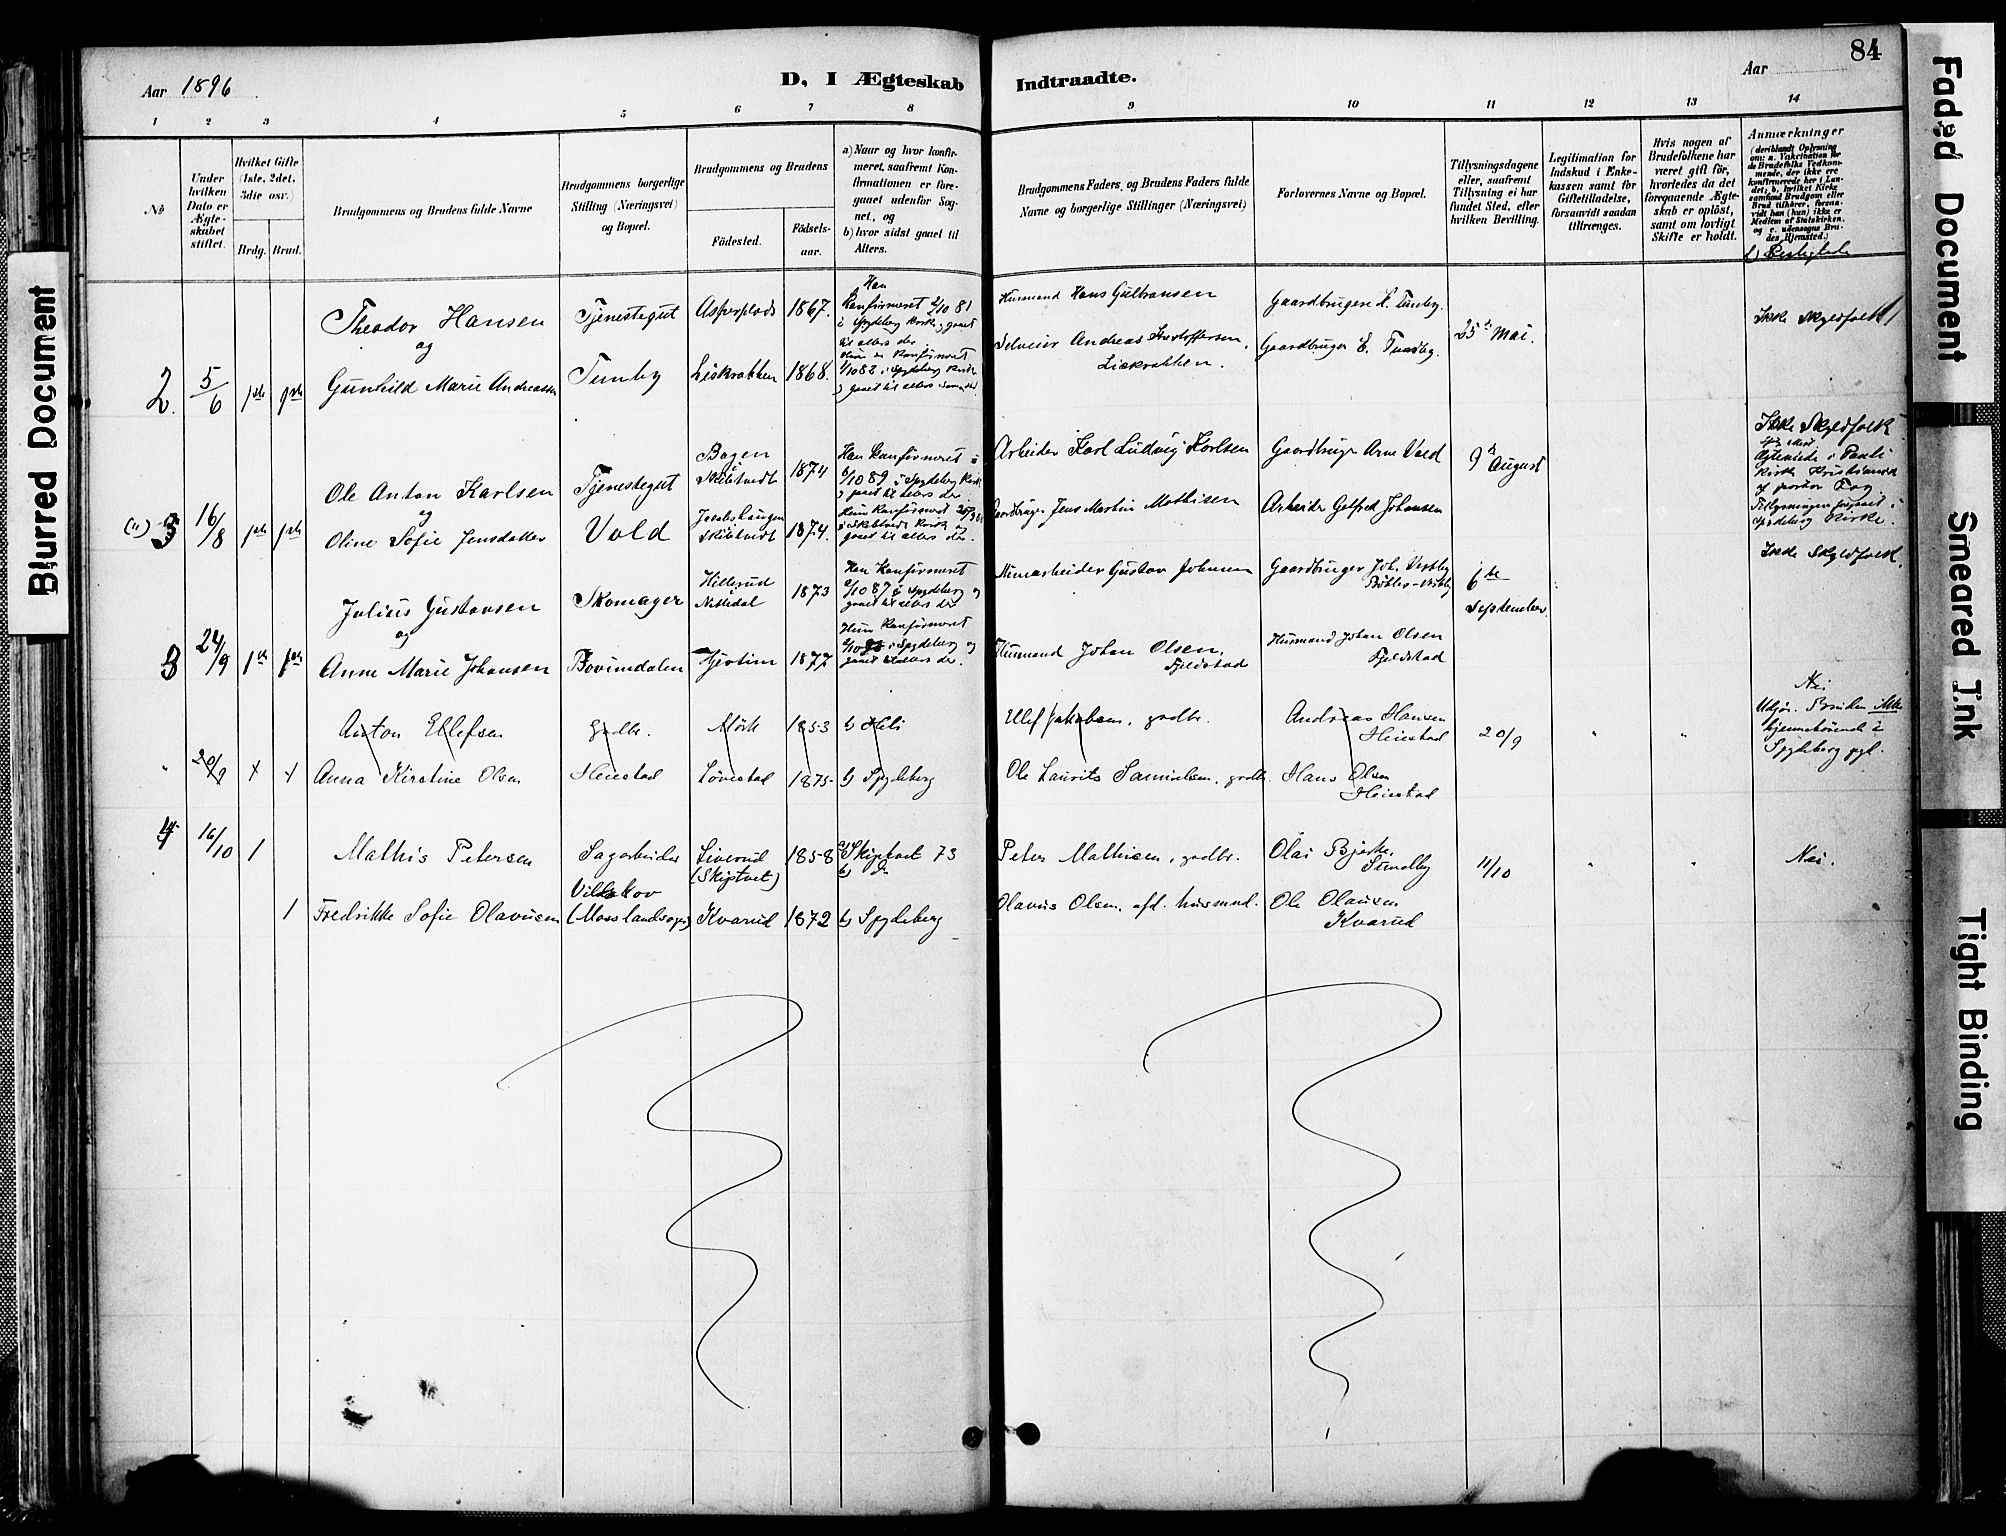 84
Aar 1896
D, I Ægteskab
Indtraadte.
Aar
1 2 3 4 5 6 7 8
9 10 11 12 13 14
№
Under hvilken Dato er Ægteskabet stiftet.
Hvilket Gifte (1ste, 2det, 3die osv.)
Brdg. Brud.
Brudgommens og Brudens fulde Navne
Brudgommens borgerlige Stilling (Næringsvei) og Bopæl.
Brudgommens og Brudens
Fødested.
Fødselsaar.
a) Naar og hvor konfirmeret, saafremt Konfirmationen er foregaaet udenfor Sognet, og
b) hvor sidst gaaet til Alters.
Brudgommens Faders, og Brudens Faders fulde Navne og borgerlige Stillinger (Næringsvei)
Forlovernes Navne og Bopæl.
Tillysningsdagene eller, saafremt Tillysning ei har fundet Sted, efter hvilken Bevilling.
Legitimation for Indskud i Enkekassen samt for Giftetilladelse, forsaavidt saadan tiltrænges.
Hvis nogen af Brudefolkene har været gift før, hvorledes da det foregaaende Ægteskab er opløst, samt om lovligt Skifte er holdt.
Anmærkninger
(deriblandt Oplysning om: a. Vaccination for de Brudefolks Vedkommende, der ikke ere konfirmerede her i Landet; b. hvilket Kirkesamfund Brudgom eller Brud tilhører, forsaavidt han (hun) ikke er Medlem af Statskirken, og c. udensogns Brudes Hjemsted.)
2. 5/6 1ste 1ste
Theodor Hansen
og
Gunhild Marie Andreasen
Tjenestegut
Tumby
Asperplads 1867.
Liskrakken 1868.
Han Konfirmeret 2/10 81 i Spydeberg Kirke, gaaet til alters der.
Hun er Konfirmeret 1/10 82 i Spydeberg Kirke
Husmand Hans Gulbransen
Selveier Andreas Kristoffersen, Liskrakken.
Gaardbruger K. Tumby.
Gaardbruger E. Tumby.
25de Mai.
Ikke Skyldfolk
(11) 3 16/8 1ste 1ste
Ole Anton Karlsen
og
Oline Sofie Jensdatter
Tjenestegut
Vold
Bøgen Skibtvedt 1874
Jacobslaugen Skibtvedt 1874.
Han Konfirmeret 6/10 89 i Spydeberg Kirke, gaaet til alters der.
Arbeider Karl Ludvig Karlsen
Gaardbruger Jens Martin Mathisen
Gaardbruger Arne Vold
Arbeider Gelfred Johansen
9de August
Ikke Skyldfolk
3 24/9 1ste 1ste
Julius Gustavsen
og
Anne Marie Johansen
Skomager
Bovimdalen
Hillerud Nittedal 1873
Hjertim 1877
Han Konfirmeret 2/10 87 i Spydeberg og gaaet til alters der
Hun Konfirmeret i Spydeberg og gaaet til alters der.
Gustav Johnsen
Husmand Johan Olsen, Fjeldstad
Gaardbruger Joh. Vestby
Husmand Johan Olsen Fjeldstad
6te September
Ikke Skyldfolk
" 20/9 + +
Anton Ellefsen
Anna Kirstine Olsen
grdbr.
Heiestad
Mørk 1853
Løvestad 1875
b) Heli
b) Spydeberg
Ellef Jakobsen, grdbr.
Ole Laurits Samuelsen, grdbr.
Andreas Hansen Heiestad
Hans Olsen Heiestad
20/9 " "
Nei
Udgår. Bruden ikke hjemmehørende i Spydeberg pgl.
4 16/10 1
Mathis Petersen
1 Fredrikke Sofie Olavusen
Sagarbeider
(Moss landsogn)
Siverud (Skiptvet) 1858
Kvarud 1872
a) Skiptvet 73
b) do
b) Spydeberg
Peter Mathisen, grdbr.
Olavus Olsen, afd. husmnd.
Olai Bjerke, Sundby
Ole Olausen Kvarud
11/10 " "
Nei.
Blurred Document
Faded Document
Smeared Ink
Tight Binding